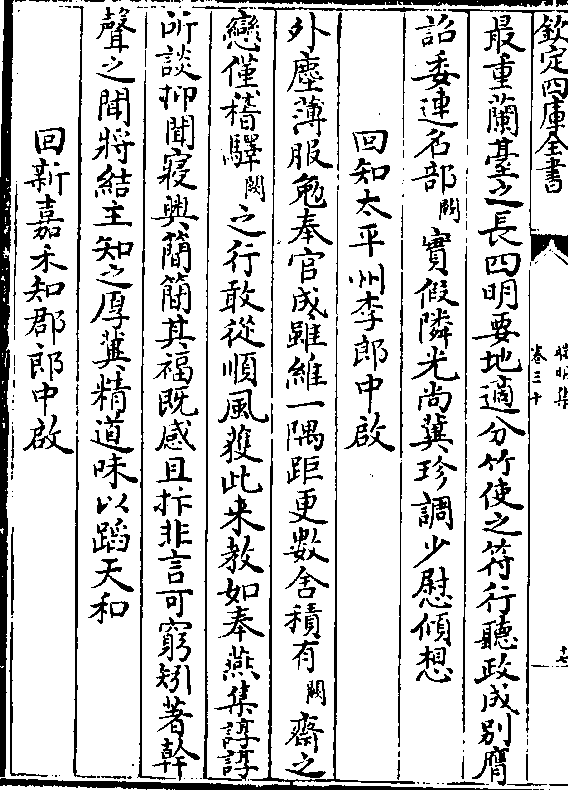 欽定四庫全書
卷三十
最重蘭臺之長四明要地適分竹使之符行聽政成別膺
詔委連名部闕實假隣光尚冀珍調少慰傾想
回知太平州李郎中啟
外塵薄服勉奉官成雖維一隅距更數舍積有闕齋之
戀僅稽驛闕之行敢從順風獲此来教如奉燕集諄諄
所談抑聞寢興簡簡其福既感且抃非言可窮矧著幹
聲之聞將結主知之厚冀精道味以蹈天和
回新嘉禾知郡郎中啟